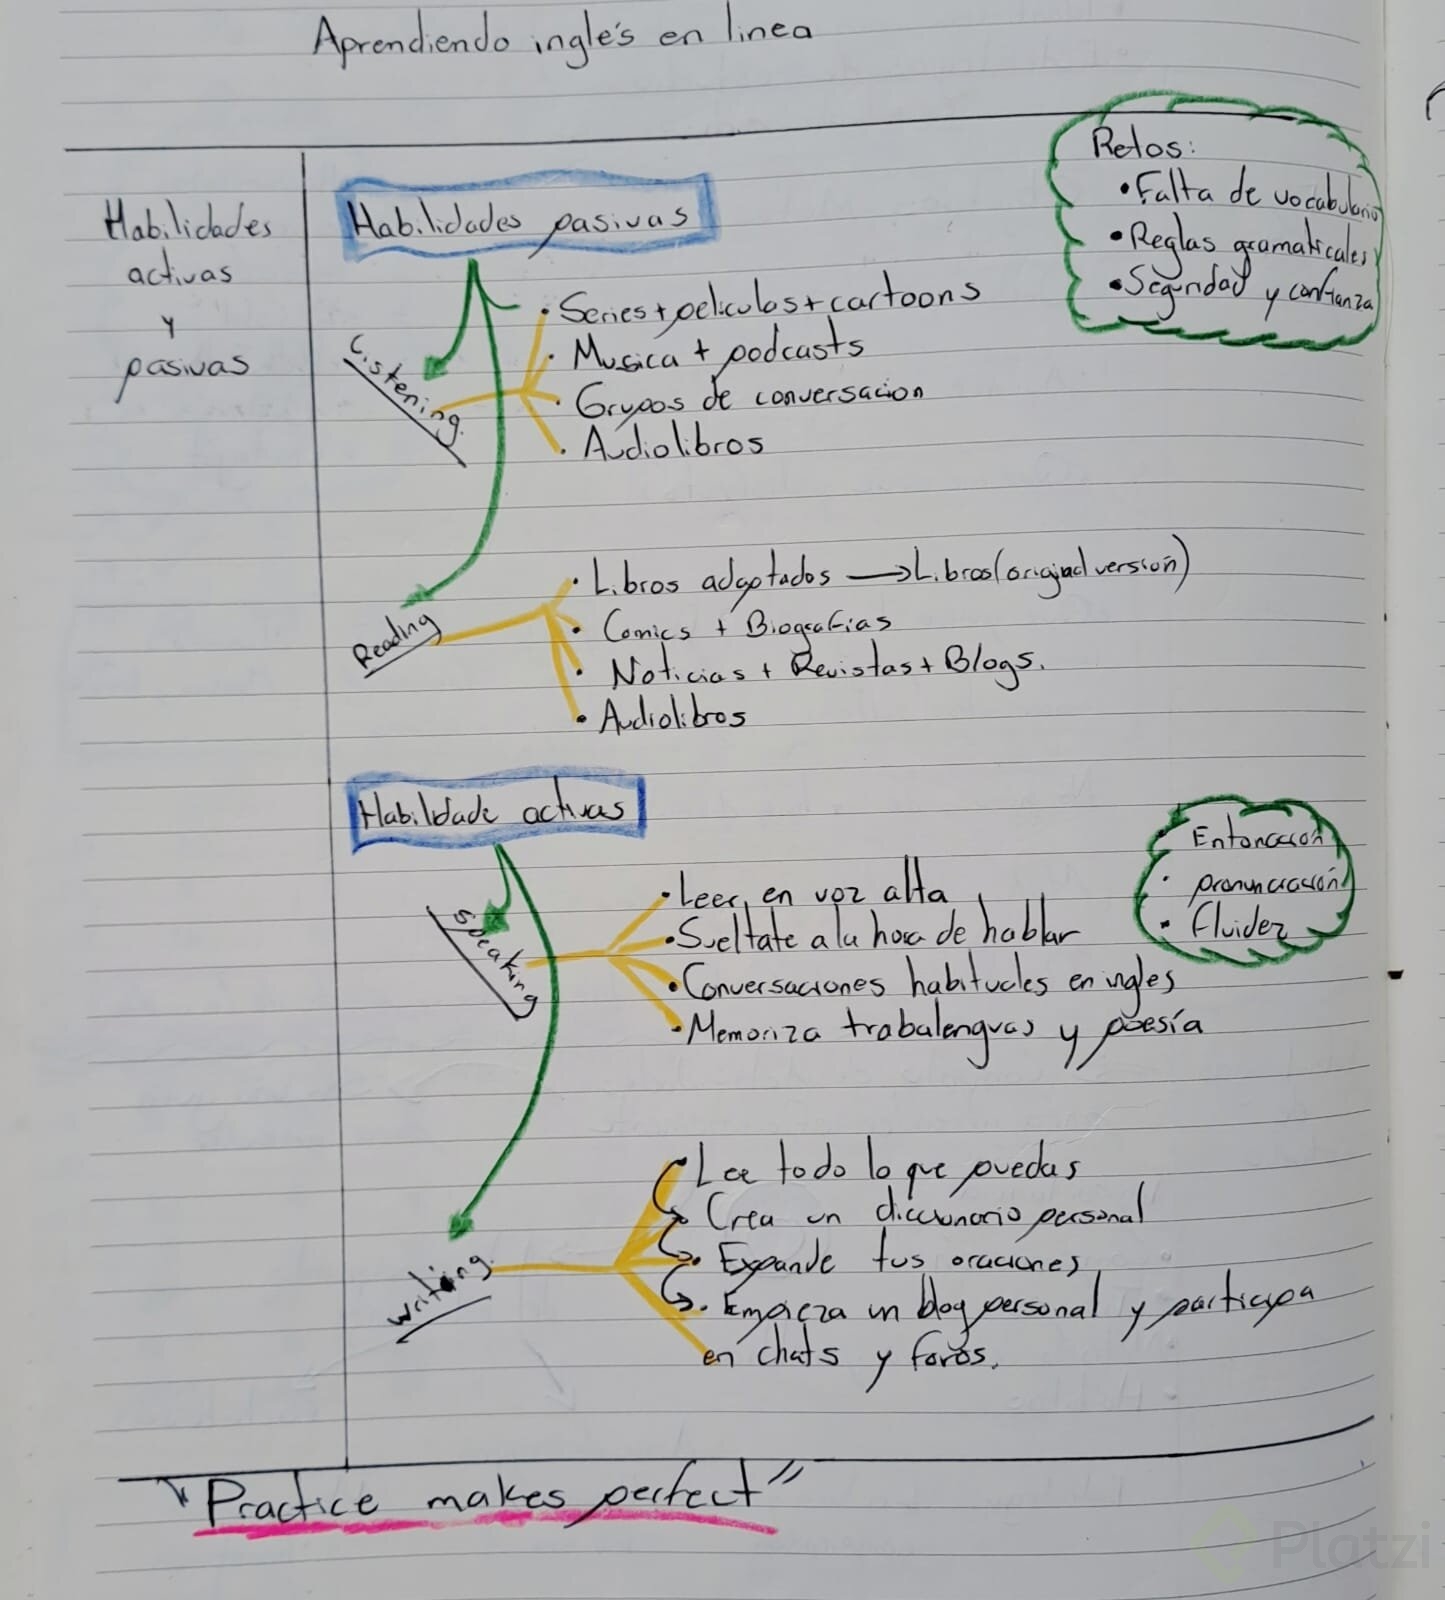 Aprendiendo inglés en linea
Habilidades
activas
y
pasivas
Habilidades pasivas
Retos:
• Falta de vocabulario
• Reglas gramaticales
• Seguridad y confianza
Listening
• Series + peliculas + cartoons
• Musica + podcasts
• Grupos de conversacion
• Audiolibros
Reading
• Libros adaptados → Libros (original versión)
• Comics + Biografias
• Noticias + Revistas + Blogs.
• Audiolibros
Habilidade activas
• Entonación
• pronunciación
• Fluidez
Speaking
• Leer en voz alta
• Sueltate a la hora de hablar
• Conversaciones habituales en ingles
• Memoriza trabalenguas y poesía
Writing
• Lee todo lo que puedas
• Crea un diccionario personal
• Expande tus oraciones
• Empieza un blog personal y participa
en chats y foros.
"Practice makes perfect"
Platzi